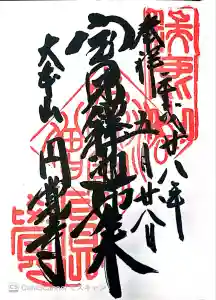 奉拝 平成廿八年
五月廿八日
宝冠釈迦如来
大本山 円覚寺
CamScannerでスキャン